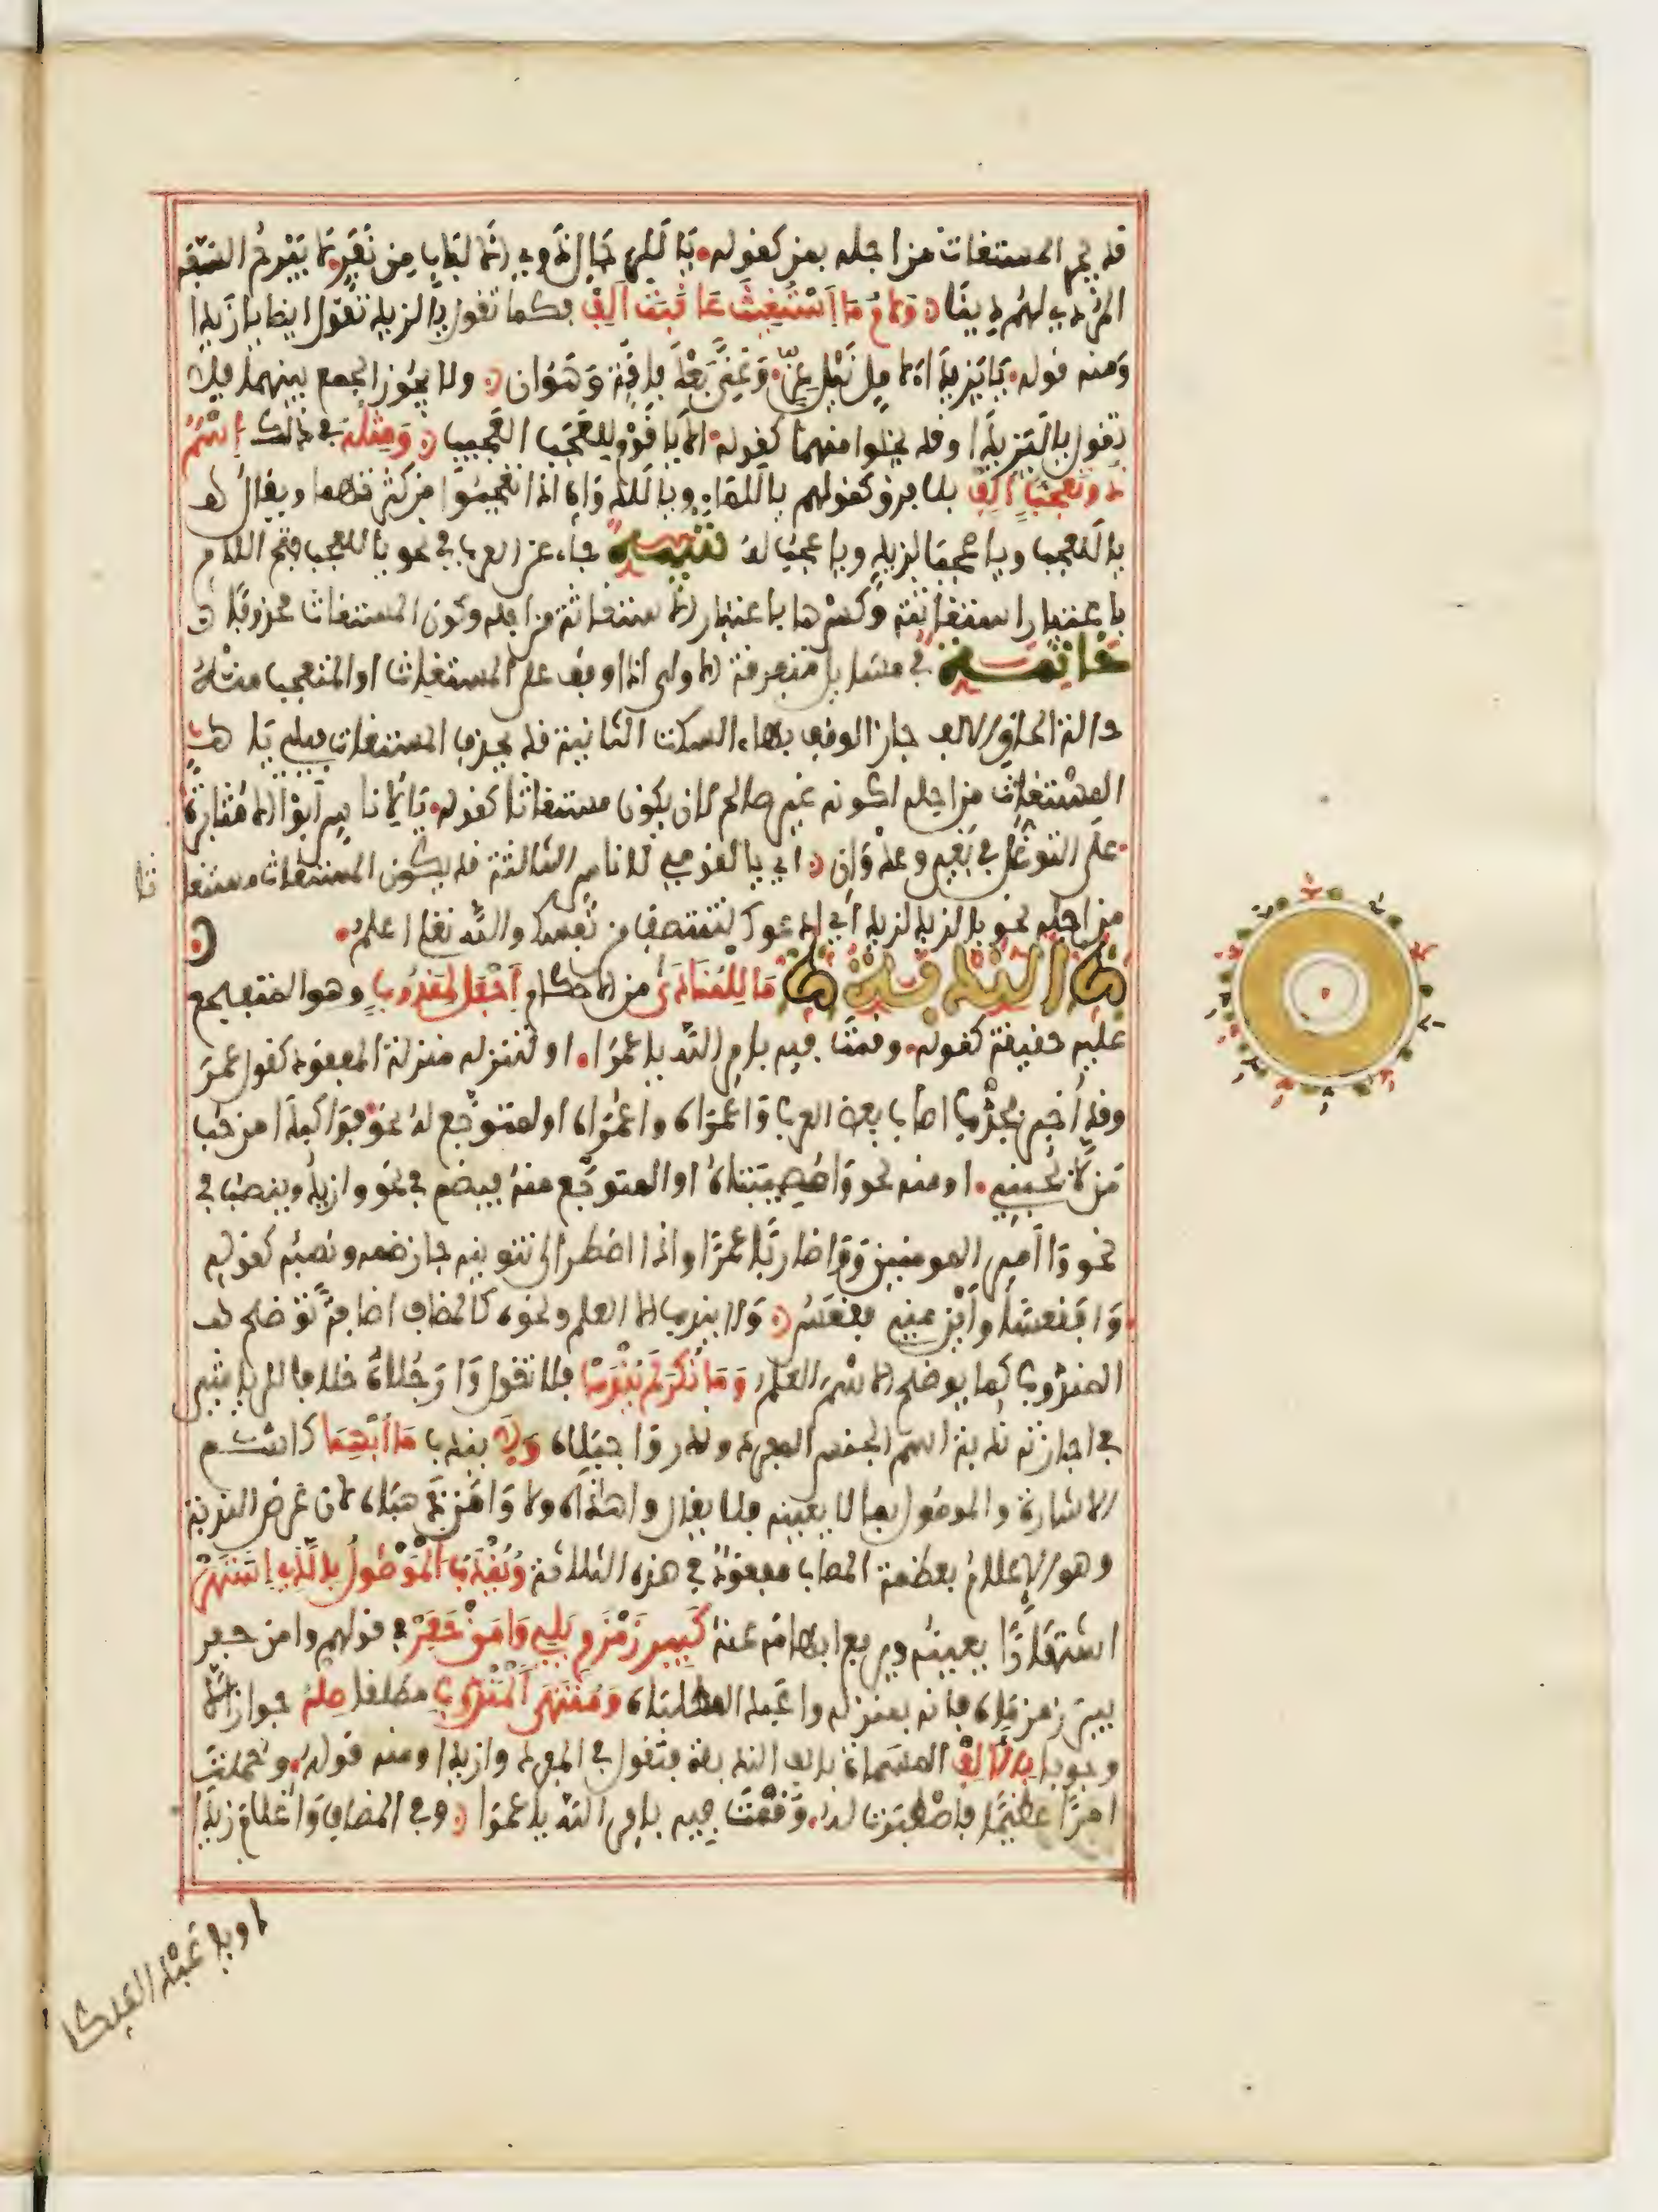 قد يجر المستغاث من اجله بمن كقوله. يَا لَلرِّجَالِ ذَوِي الالباب مِن نَفَرٍ. لا يَبْرحُ السَّفه
المُرْدي لهُم دِينًا وَلَامُ مَا اسْتُغِيثَ عَاقَبَتْ أَلِفْ فكما تقول يا لزيد تقول ايضا يا زيدا
ومنه قوله. يَا يَزِيدَا لآمِلٍ نَيْلَ عِزٍّ. وَغِنًى بَعْدَ فاقَةٍ وَهَوَان ولا يجُوز الجمع بينهما فلا
تقول يا لَيَزيدَا وقد يخلوا منهما كقوله. الا يَا قَوْمِ لِلعَجَبِ العَجِيبِ وَمِثْلُهُ في ذالك اسْمٌ
ذُو تَعَجُّبٍ أُلِفْ بلا فرق كقولهم يا لَلماءِ ويا لَلدَّوَاهِي اذا تعجبُوا من كثرتهما ويقال
يا لَلعجب ويا عجبًا لزيد ويا عجب له تنبيه جاء عن العرب في نحو يا للعجب فتح اللام
باعتبار استغاثته وكسرها باعتبار الاستغاثة من اجله وكون المستغاث محذوفا
خاتمة في مسايل متفرقة الاولى اذا وقف على المستغاث او المتعجب منه
حالة الحاق الالف جاز الوقف بهاء السكت الثانية قد يحذف المستغاث فيلي يا
المستغاث من اجله لكونه غير صالح لان يكون مستغاثا كقوله. يَا لأُناسٍ أبَوْا الا مُثَابَرَةً
على التوغّل في بَغْيٍ وعدْوَانِ اي يا لقومي لاناس الثالثة قد يكون المستغاث مستغا ثا
من اجله نحو يا لزيد لزيد أي ادعوك لتنتصف من نفسك والله تعلى اعلم.
النُّدْبَة مَا لِلمُنادَى من الاحكام اجْعَل لمَندُوبٍ وهو المتفجع
عليه حقيقة كقوله. وقمتَ فيه بامر الله يا عمرَا. او لتنزله منزلة المفقود كقول عمر
وقد أخبر بجدْب اصاب بعض العرب وَاعمرَاه واعمَرَاه او المتوجَّع له نحو فوَا كبدَا من حُب
مَن لا يحبني. او منه نحو وَامُصِيبَتَاهُ او المتوجَّع منه فيضم في نحو وازيدُ وينصب في
نحو وَا أميرَ المومنين وَوَا ضاربًا عمرًا واذا اضطر الى تنوينه جاز ضمه ونصبه كقوله
وَا فقعسًا وأيْن مني فقعَسُ وَلا يندب الا العلم ونحوه كالمضاف اضافةً توضح
المندوب كما يوضح الاسْم العلم وَمَا نُكِّرَ لم يُنْدَبْ فلا تقول وَا رَجُلاهُ خلافا للرياشي
في اجازته ندبة اسم الجنس المفرد وندر وَا جبَلاه وَلا يندب مَا أُبْهِمَا كاسْم
الاشارة والموصُول بما لا يعينه فلا يقال وا هذاه ولا وَا مَن ذهبَاه لان غرض الندبة
وهو الاعلامُ بعظمة المصاب مفقود في هذه الثلاثة ويُنْدَبُ الْمَوْصُولُ بِالَّذِي اشتَهَرْ
اشتهَارًا يعينُه ويرفع ابهامَه عنه كَبِيرَ زَمْزَمٍ يَلِي وَا مَنْ حَفَرْ في قولهم وا من حفر
بير زمزماه فانه بمنزلة وا عَبد المطلباه وَمُنْتَهَى الْمَنْدُوبِ مطلقا صِلهُ جوازًا لا
وجوبا بِالأَلِفْ المسَماة بالف الندبة فتقول في المفرد وازيدا ومنه قوله. وحُملْتَ
امرًا عظيمًا فاصْطَبَرْتَ له. وَقُمْتَ فيه بامر الله يا عمرَا وفي المضاف وَا غلام زيدَا
وفي عَبْد الملكا